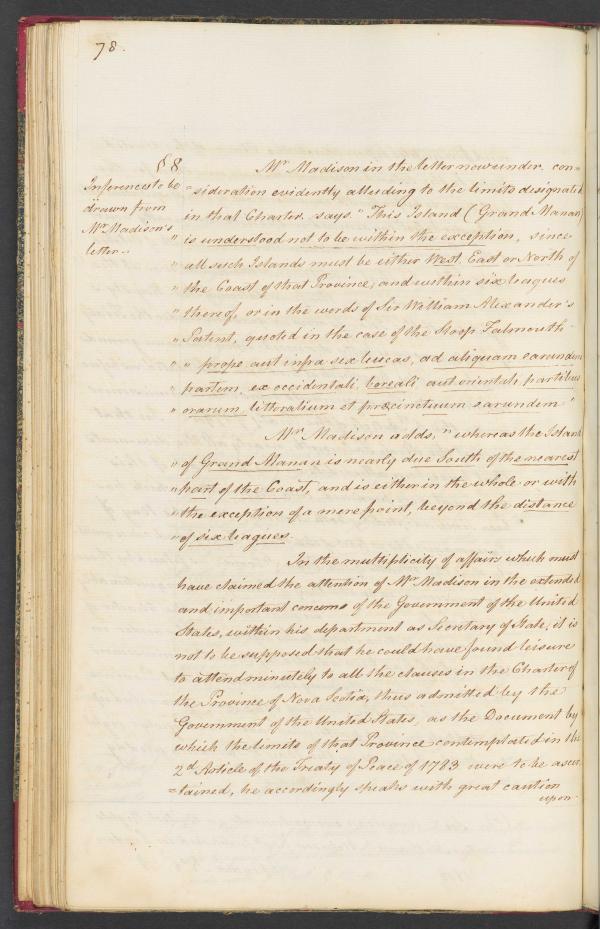 78.
§ 8
Inferences to be
drawn from
Mr Madison's
letter.
Mr Madison in the letter now under con=
=sideration evidently alluding to the limits designated
in that Charter, says. "This Island (Grand Manan)
" is understood not to be within the exception, since
" all such Islands must be either West East or North of
" the Coast of that Province, and within six leagues
" thereof, or in the words of Sir William Alexander's
" Patent, quoted in the case of the Sloop Falmouth
" " prope aut infra sex leucas, ad aliquam earundem
" partem, ex occidentali boreali aut orientali partibus
" orarum littoralium et præcinctuum earundem "
Mr Madison adds, " whereas the Island
" of Grand Manan is nearly due South of the nearest
" part of the Coast, and is either in the whole or with
" the exception of a mere point, beyond the distance
" of six leagues.
In the multiplicity of affairs which must
have claimed the attention of Mr Madison in the extended
and important concerns of the Government of the United
States, within his department as Secretary of State, it is
not to be supposed that he could have found leisure
to attend minutely to all the clauses in the Charter of
the Province of Nova Scotia, thus admitted by the
Government of the United States, as the Document by
which the limits of that Province contemplated in the
2d Article of the Treaty of Peace of 1783 were to be ascer
=tained, he accordingly speaks with great caution
upon